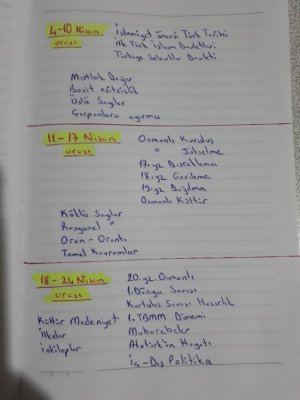 4-10 Nisan
arası
İslamiyet öncesi Türk Tarihi
İlk Türk İslam Devletleri
Türkiye Selçuklu Devleti
Mutlak Değer
Basit eşitsizlik
Üslü Sayılar
Çarpanlara ayırma
11-17 Nisan
arası
Osmanlı Kuruluş
" Yükselme
17.yy Duraklama
18.yy Gerileme
19.yy Dağılma
Osmanlı Kültür
Köklü Sayılar
Rasyonel "
Oran-Orantı
Temel Kavramlar
18-24 Nisan
arası
20.yy. Osmanlı
1.Dünya Savaşı
Kurtuluş Savaşı Hazırlık
1.TBMM Dönemi
Muharebeler
Atatürk'ün Hayatı
İç-Dış Politika
Kültür Medeniyet
İlkeler
İnkılaplar